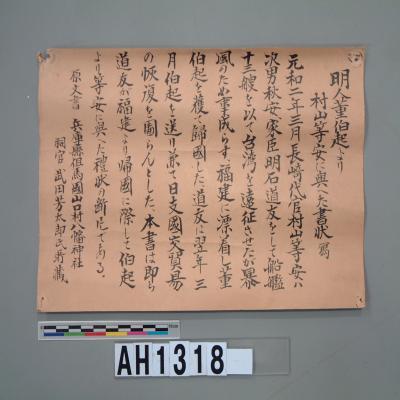 明人董伯起より
村山等安に與へた書状 写
元和二年三月長崎代官村山等安ハ
次男秋安家臣明石道友をして船艦
十三艘を以て台湾を遠征させたが暴
風のため事成らず、福建に漂着し董
伯起を獲て歸國した道友は翌年三
月伯起を送り旁て日支國交貿易
の恢復を圖らんとした、本書は即ち
道友が福建より帰國に際して伯起
より等安に與へた禮状の断片である。
原文書 兵庫縣但馬國山口村八幡神社
祠官 武田芳太郎氏所藏
AH1318